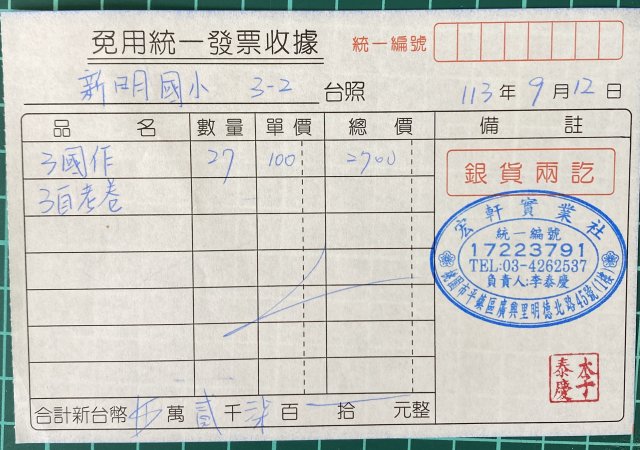 免用統一發票收據
統一編號
新明國小 3-2 台照
113年9月12日
品名 數量 單價 總價 備註
3國作 27 100 2700
3百老卷
銀貨兩訖
宏軒實業社
統一編號
17223791
TEL:03-4262537
負責人:李泰慶
桃園市平鎮區廣興里明德北路45號(1樓)
李泰慶
合計新台幣 萬貳千柒百 拾 元整